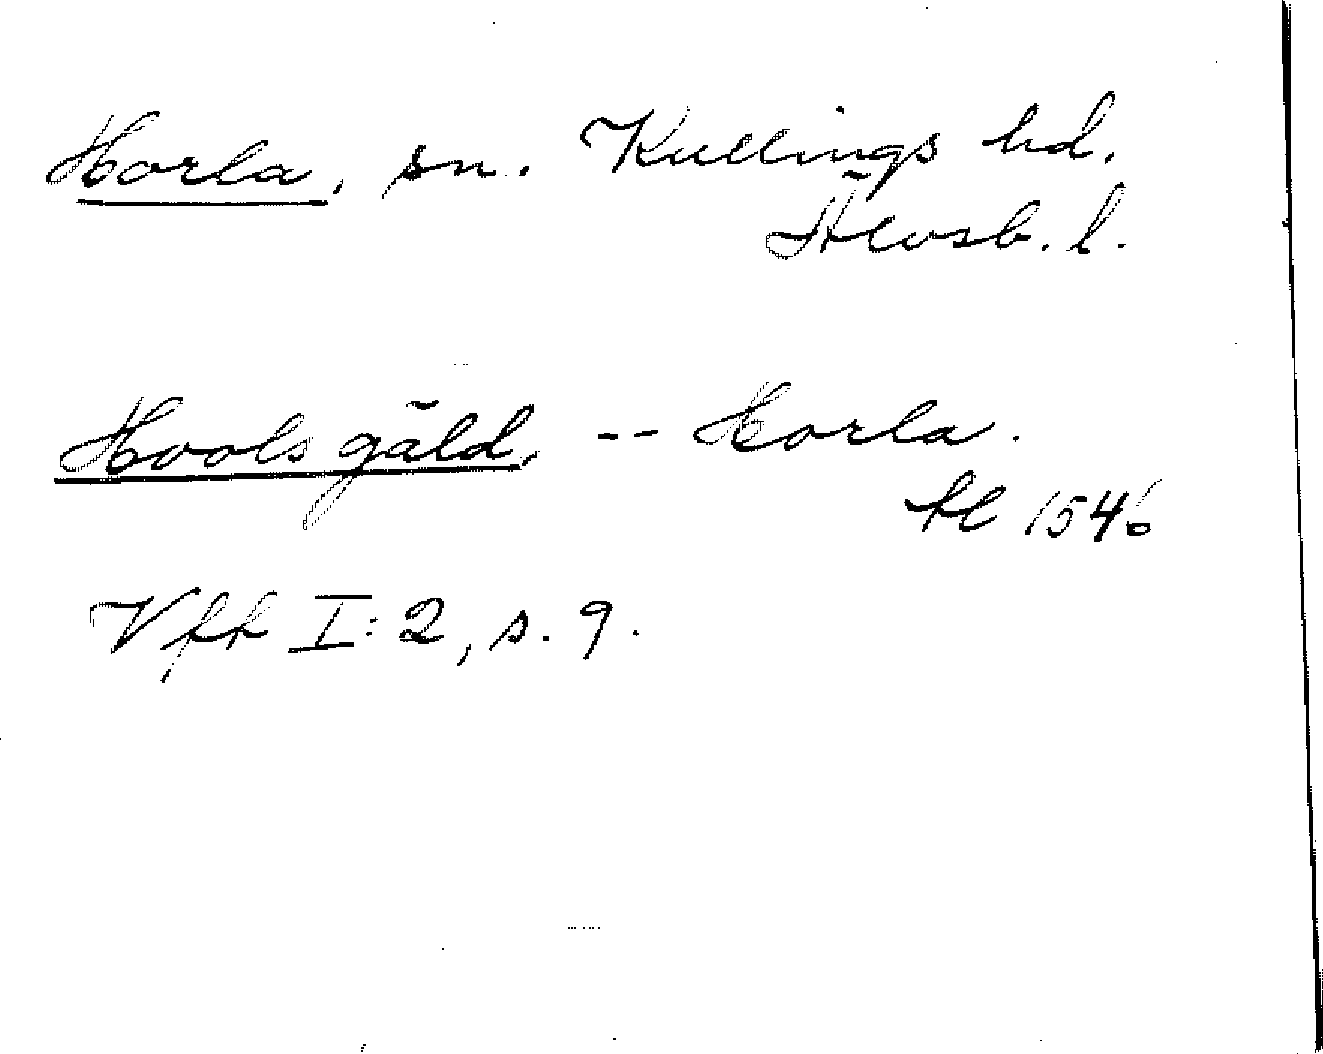 Horla, sn. Kullings hd.
Älvsb. l.
Hools gäld, -- Horla.
tl 1546
Vfft I: 2, s. 9.